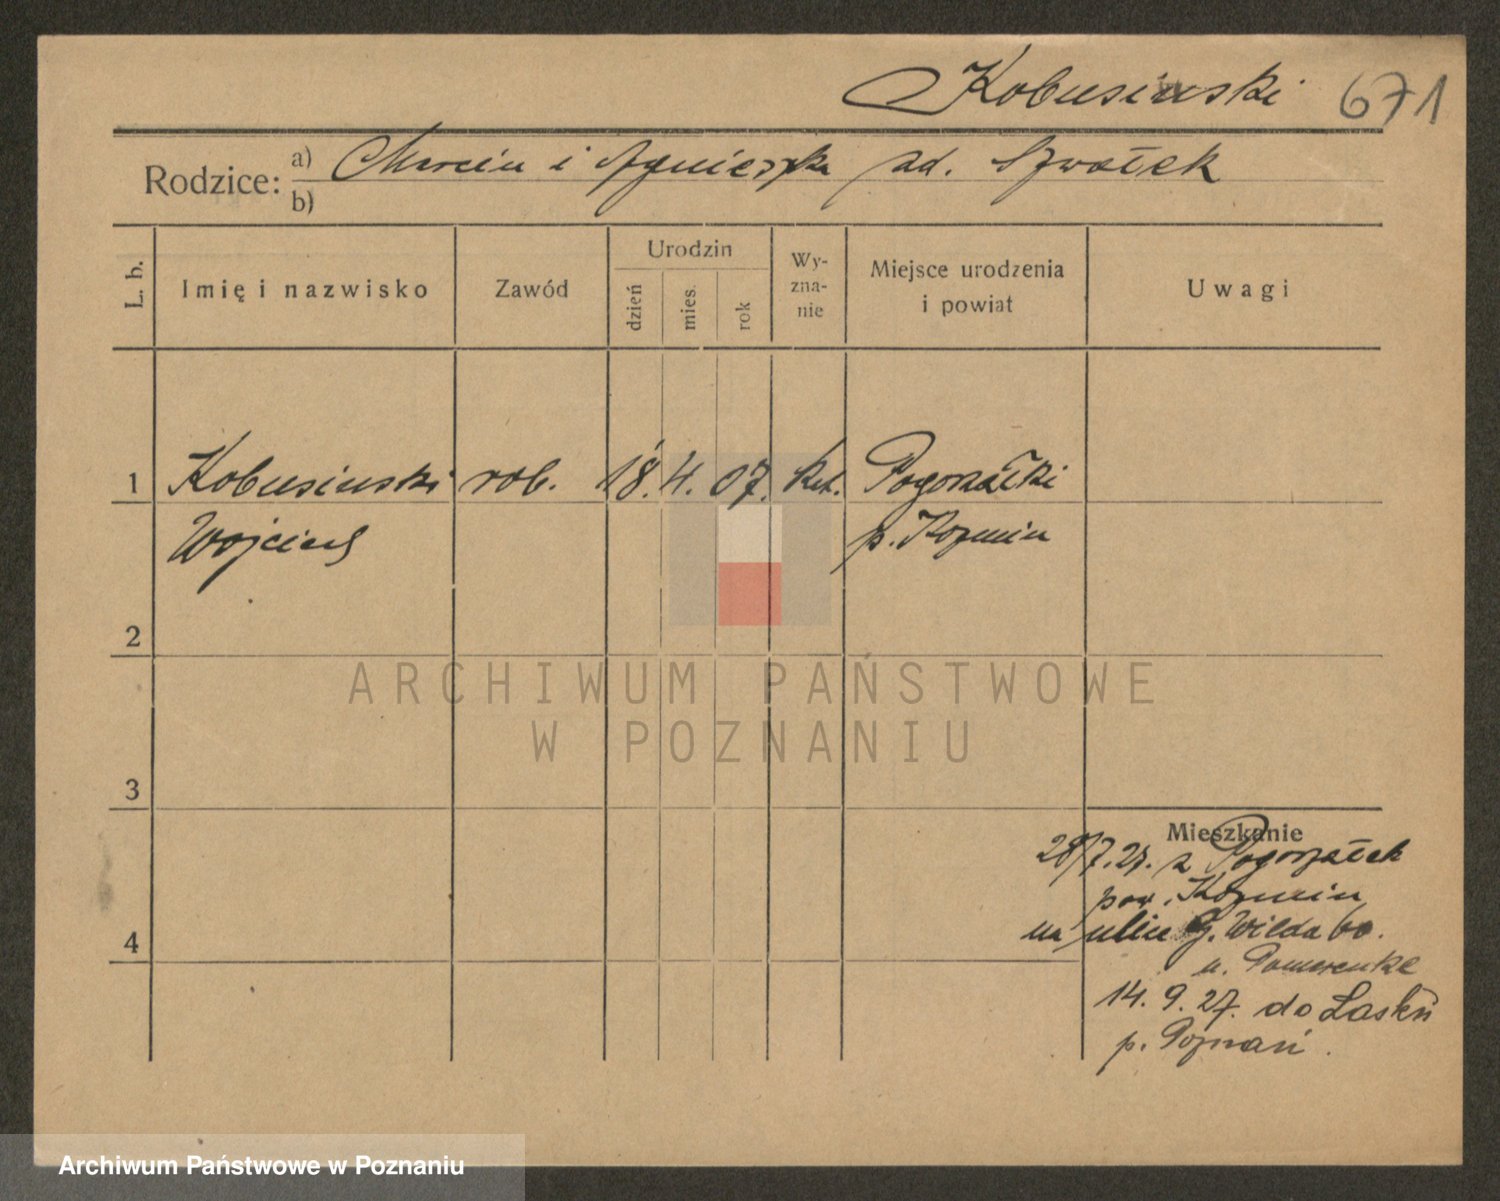 Kobusinski 671
Rodzice: a) Marcin i Agnieszka zd. Szwałek
b)
L. b. Imię i nazwisko Zawód Urodzin dzień mies. rok Wy-zna-nie Miejsce urodzenia i powiat Uwagi
1 Kobusinski rob. 18. 4. 07. kat. Pogorzałki
Wojciech p. Kozmin
2
3
Mieszkanie
28/7.27. z Pogorzałek
pow. Kozmin
na ulice G. Wilda 60.
4
u. Pomerenke
14. 9. 27. do Laskń
p. Poznań.
ARCHIWUM PAŃSTWOWE
W POZNANIU
Archiwum Państwowe w Poznaniu